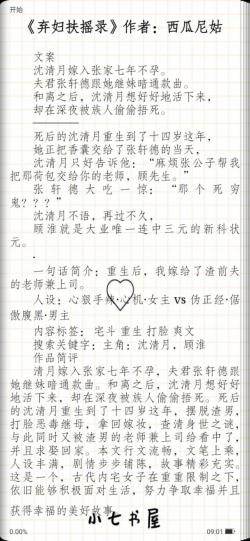 开始
《弃妇扶摇录》作者：西瓜尼姑
文案
沈清月嫁入张家七年不孕。
夫君张轩德跟她继妹暗通款曲。
和离之后，沈清月想好好地活下来，
却在深夜被族人偷偷捂死。
死后的沈清月重生到了十四岁这年，
她正把香囊交给了张轩德的当天，
沈清月只好告诉他：“麻烦张公子帮我
把那荷包交给你的老师，顾先生。”
张轩德大吃一惊：“那个死穷
鬼？？？”
沈清月不语，再过不久，
顾淮就是大业唯一连中三元的新科状
元。
.
一句话简介：重生后，我嫁给了渣前夫
的老师兼上司。
人设：心狠手辣·心机·女主 vs 伪正经·倨
傲腹黑·男主
内容标签：宅斗 重生 打脸 爽文
搜索关键字：主角：沈清月，顾淮
作品简评
清月嫁入张家七年不孕，夫君张轩德跟
她继妹暗通款曲。和离之后，沈清月想好好
地活下来，却在深夜被族人偷偷捂死。死后
的沈清月重生到了十四岁这年，摆脱渣男，
打脸恶毒继母，拿回嫁妆，查清身世之谜，
与此同时又被渣男的老师兼上司给看中了，
并且求娶回家。本文行文流畅，文笔上乘，
人设丰满，剧情步步铺陈，故事精彩充实。
这是一个，古代内宅女子在重重限制之下，
依旧能够积极面对生活，努力争取幸福并且
获得幸福的美好故事
小七书屋
0.00%
09:01